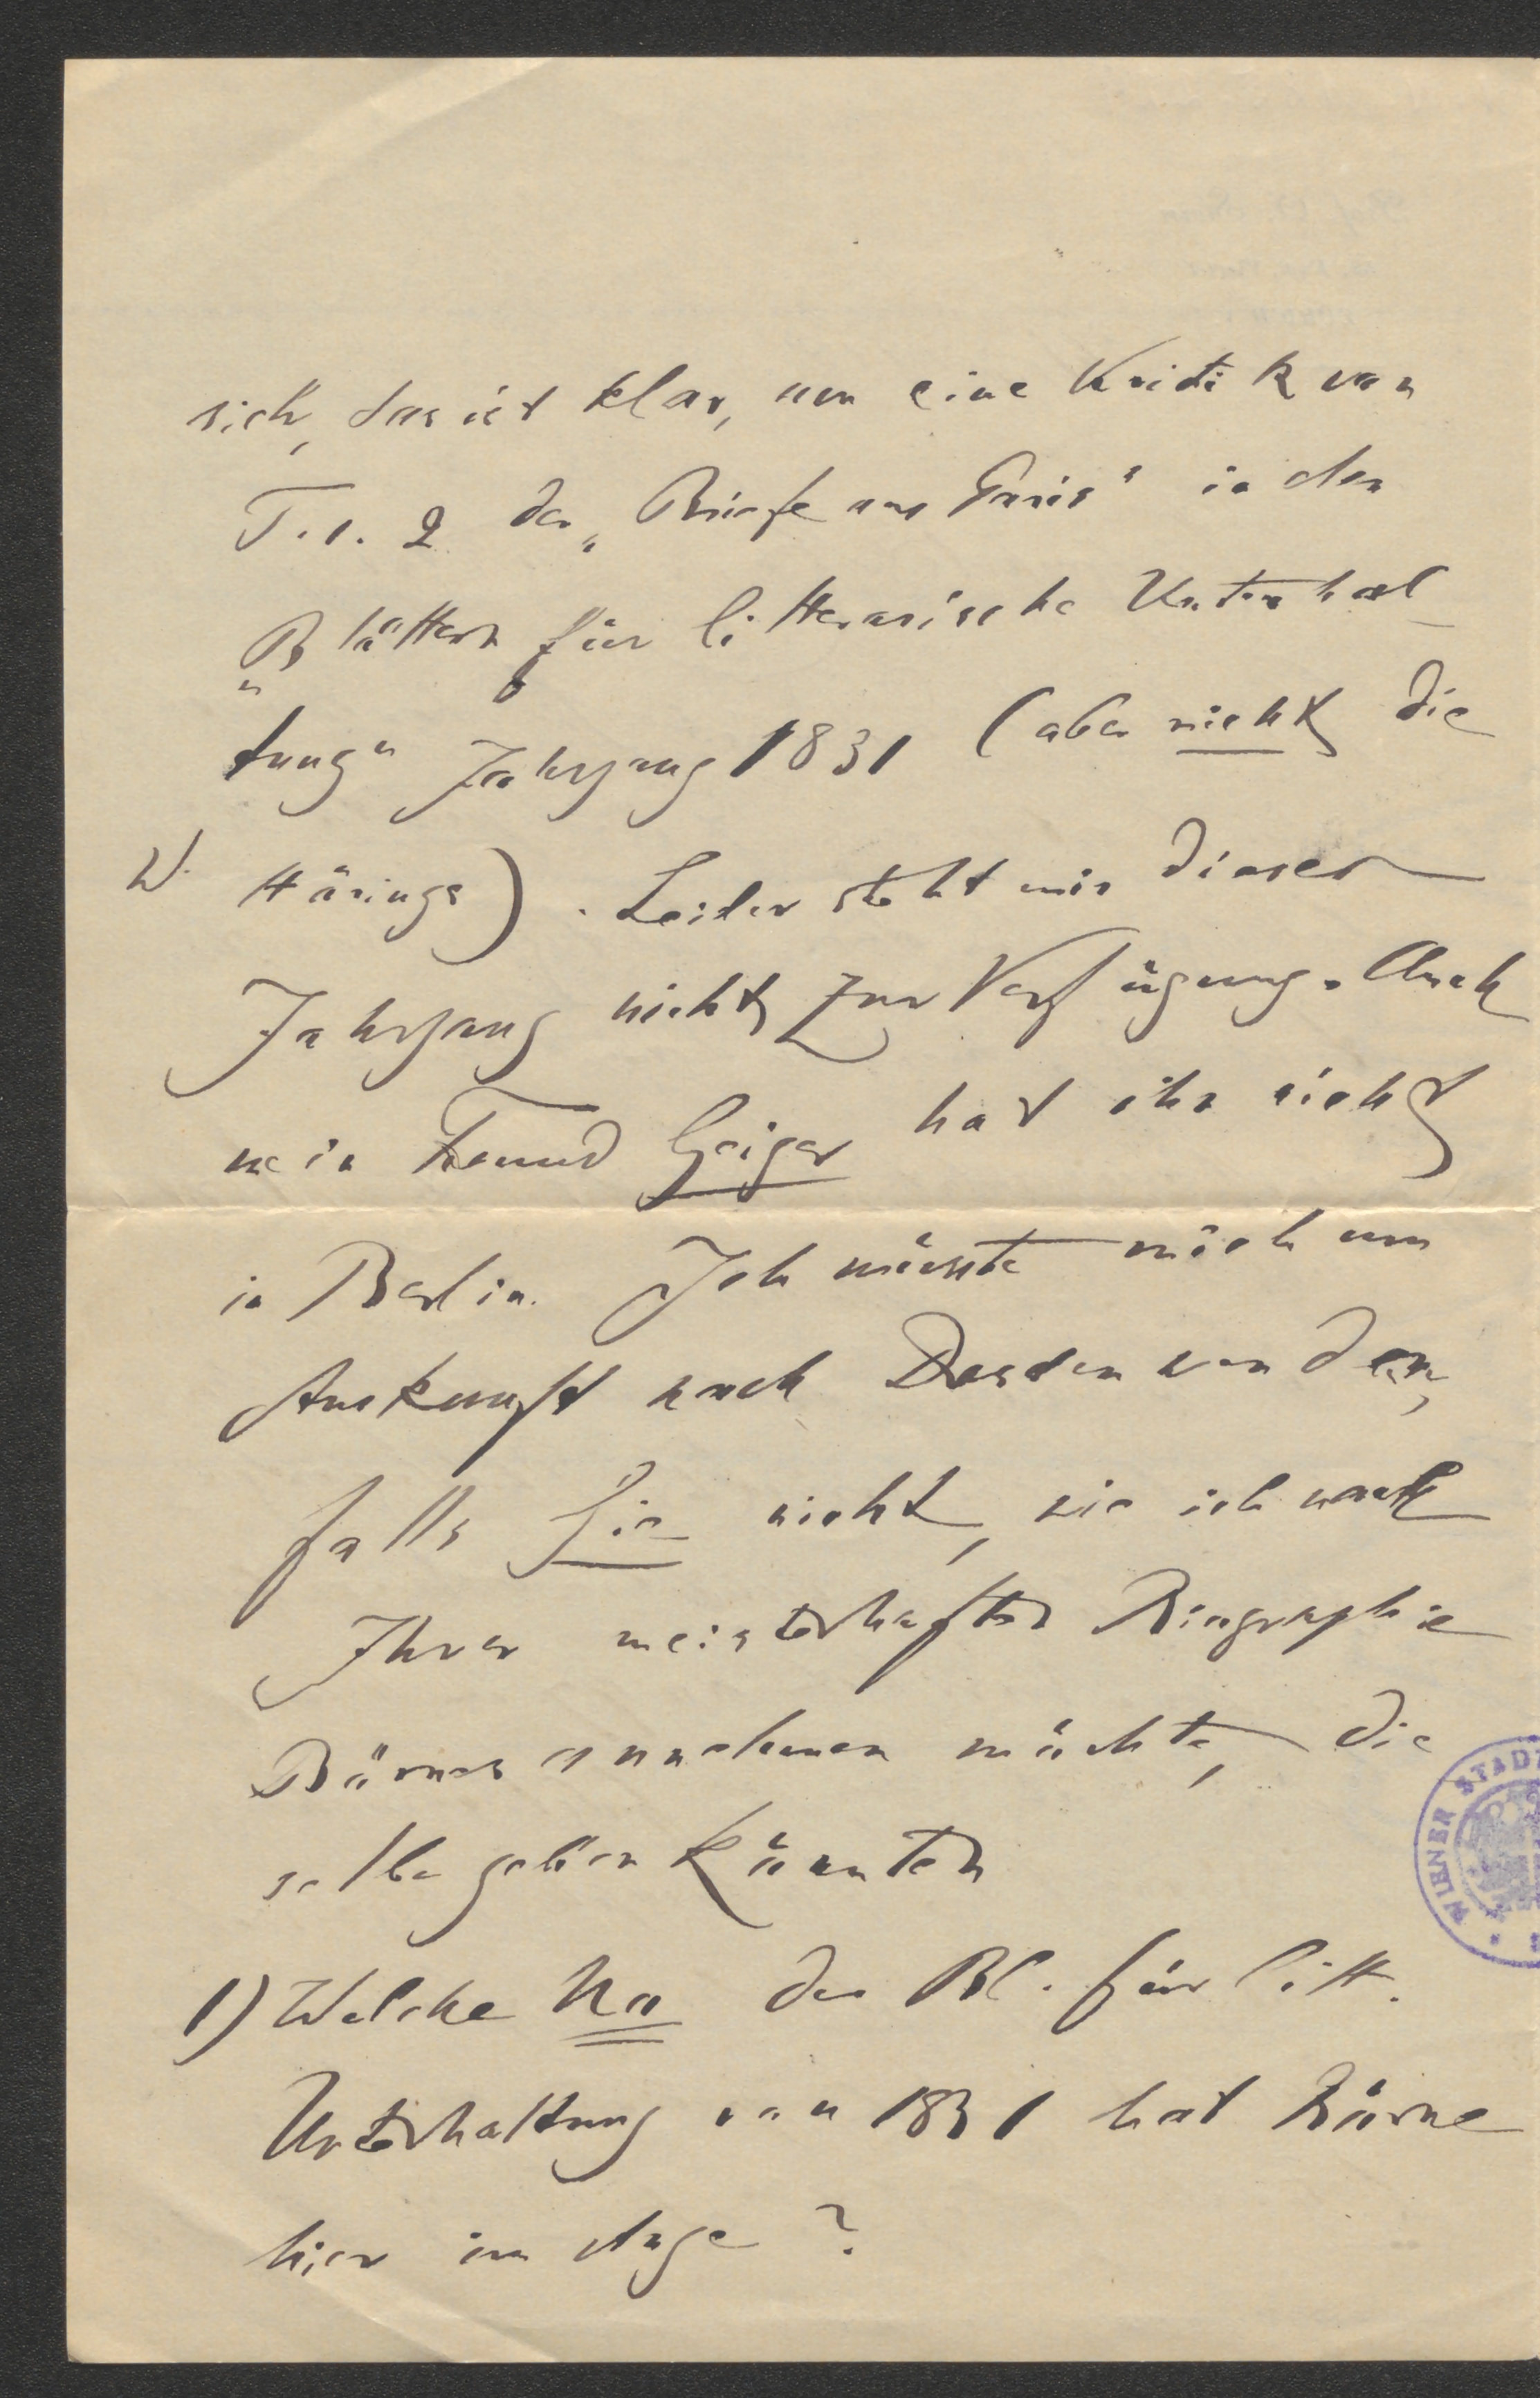 sich, das ist klar, um eine Kritik von
T. 1. 2 der „Briefe aus Paris" in den
„Blättern für litterarische Unterhal-
tung" Jahrgang 1831 (aber nicht die
W. Härings). Leider steht mir dieser
Jahrgang nicht zur Verfügung. Auch
mein Freund Geiger hat ihn nicht
in Berlin. Ich müsste mich um
Auskunft nach Dresden wenden,
falls Sie nicht, wie ich nach
Ihrer meisterhaften Biographie
Börnes annehmen möchte, die
selbe geben könnten
1) Welche No der Bl. für litt.
Unterhaltung von 1831 hat Börne
hier im Auge?
WIENER STADT